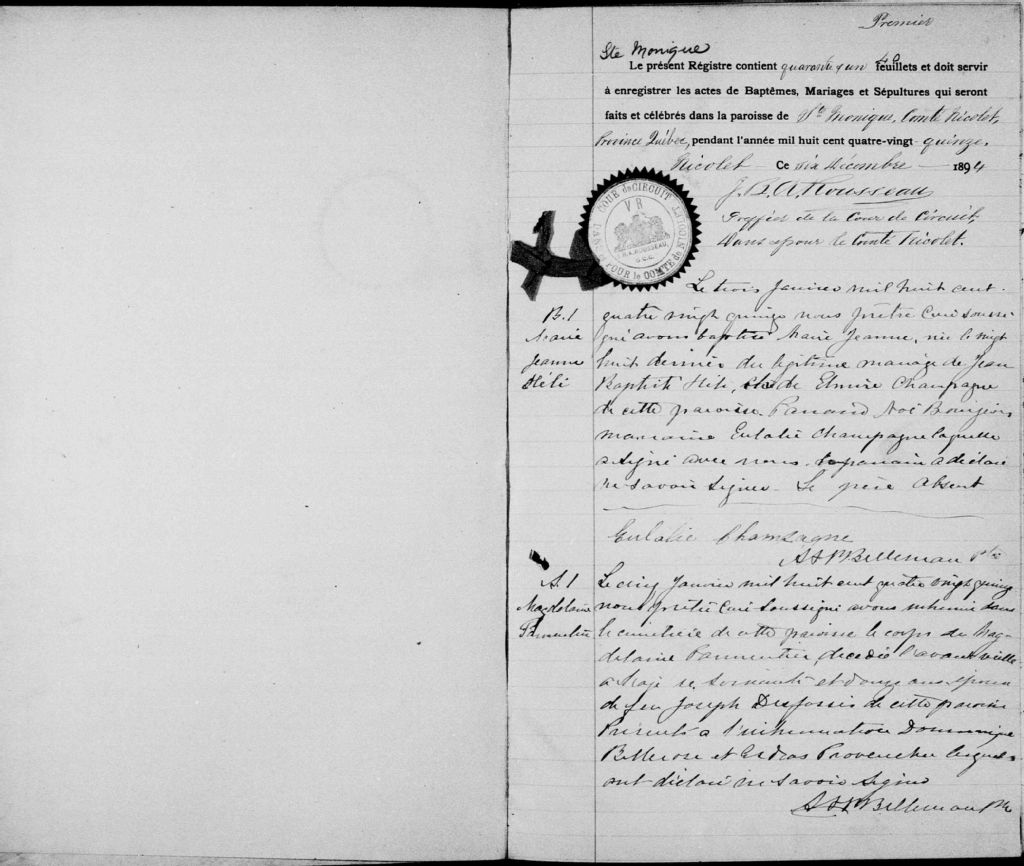 Premier
Ste Monique
Le présent Régistre contient quarante & un feuillets et doit servir
à enregistrer les actes de Baptêmes, Mariages et Sépultures qui seront
faits et célébrés dans la paroisse de Ste Monique, Comté Nicolet,
Province Québec, pendant l'année mil huit cent quatre-vingt quinze.
Nicolet Ce dix décembre 1894
J. B. A. Rousseau
Greffier de la Cour de Circuit,
Dans & pour le Comté Nicolet.
COUR de CIRCUIT
V R
POUR le COMTE de NICOLET
ROUSSEAU,
G.C.C.
Le trois Janvier mil huit cent
B. 1
quatre vingt quinze nous prêtre Curé soussi-
Marie
gné avons baptisé Marie Jeanne, née le vingt
Jeanne
huit dernier du légitime mariage de Jean
Héli
Baptiste Héli, & de Elmire Champagne
de cette paroisse. Parrain Noé Bourgeois
marraine Eulalie Champagne laquelle
a signé avec nous. Le parrain a déclaré
ne savoir signer. Le père absent
Eulalie Champagne
Bellemare Ptre
S. 1
Le cinq Janvier mil huit cent quatre vingt quinze
Magdelaine
nous prêtre Curé soussigné avons inhumé dans
Parmentier
le cimetière de cette paroisse le corps de Mag-
delaine Parmentier, décédée l'avant veille
à l'âge de soixante et douze ans épouse
de feu Joseph Desfossés de cette paroisse
Présents à l'inhumation Dominique
Bellerose et Esdras Provencher lesquels
ont déclaré ne savoir signer
Bellemare Ptre